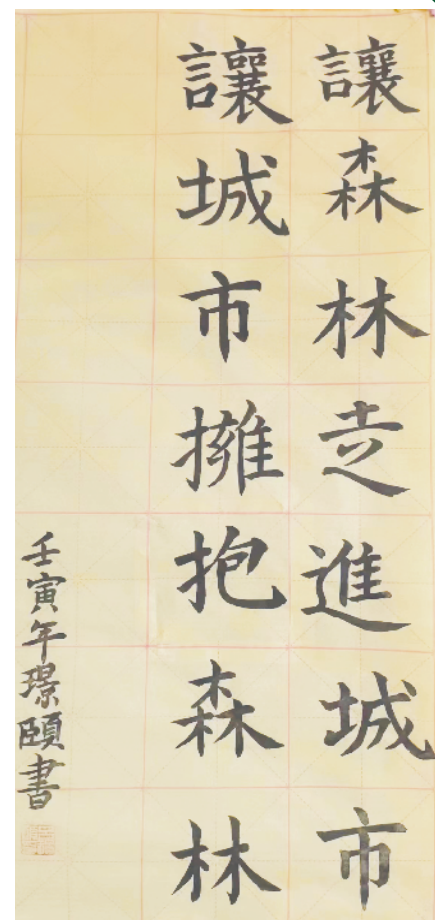 讓森林走進城市
讓城市擁抱森林
壬寅年璟頤書